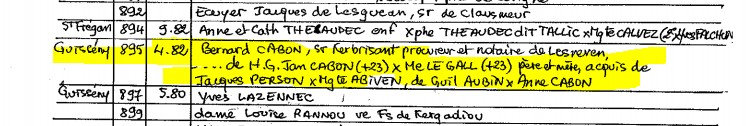 892 Ecuyer Jacques de Lesguean, sr de Clausmeur
St Frégan 894 9.82 Anne et Cath THEAUDEC enf xphe THEAUDEC dit TALLIC x Mgte CALVEZ (2) xYves FALCHUN
Guissény 895 4.82 Bernard CABON, sr Kerbrisant procureur et notaire de Lesneven,
.... de H.G. Jan CABON (+23) x Me LE GALL (+23) père et mère, acquis de
Jacques PERSON x Mgte ABIVEN, de Guil AUBIN x Anne CABON
Guissény 897 5.80 Yves LAZENNEC
899 dame Louise RANNOU ve Fs de Kergadiou